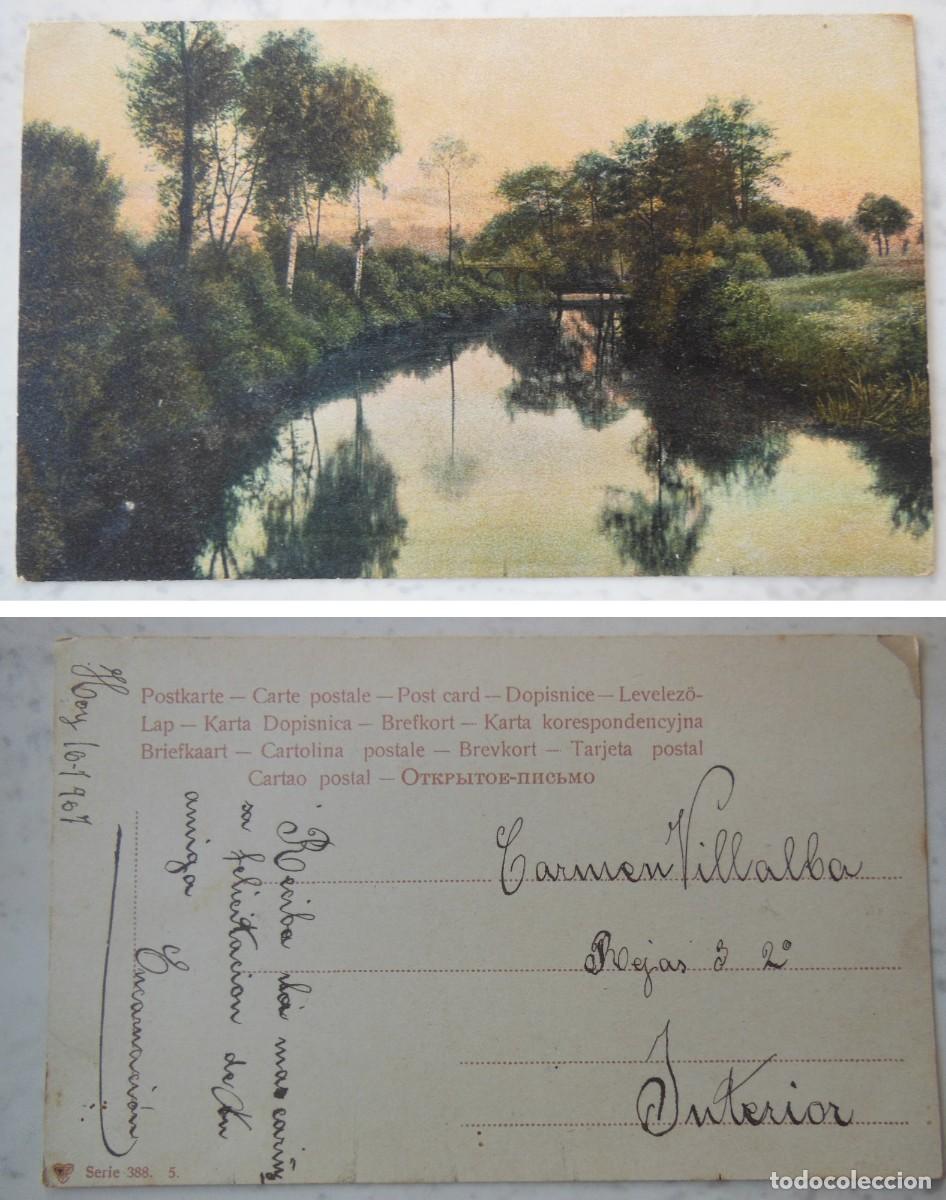 Postkarte — Carte postale — Post card — Dopisnice — Levelezö-
Lap — Karta Dopisnica — Brefkort — Karta korespondencyjna
Briefkaart — Cartolina postale — Brevkort — Tarjeta postal
Cartao postal — Открытое-письмо
Hoy 16-1907
Reciba lá mas cariñ
sa felicitacion de tu
amiga
Encarnación
Carmen Villalba
Rejas 3 2º
Interior
Serie 388. 5.
todocoleccion